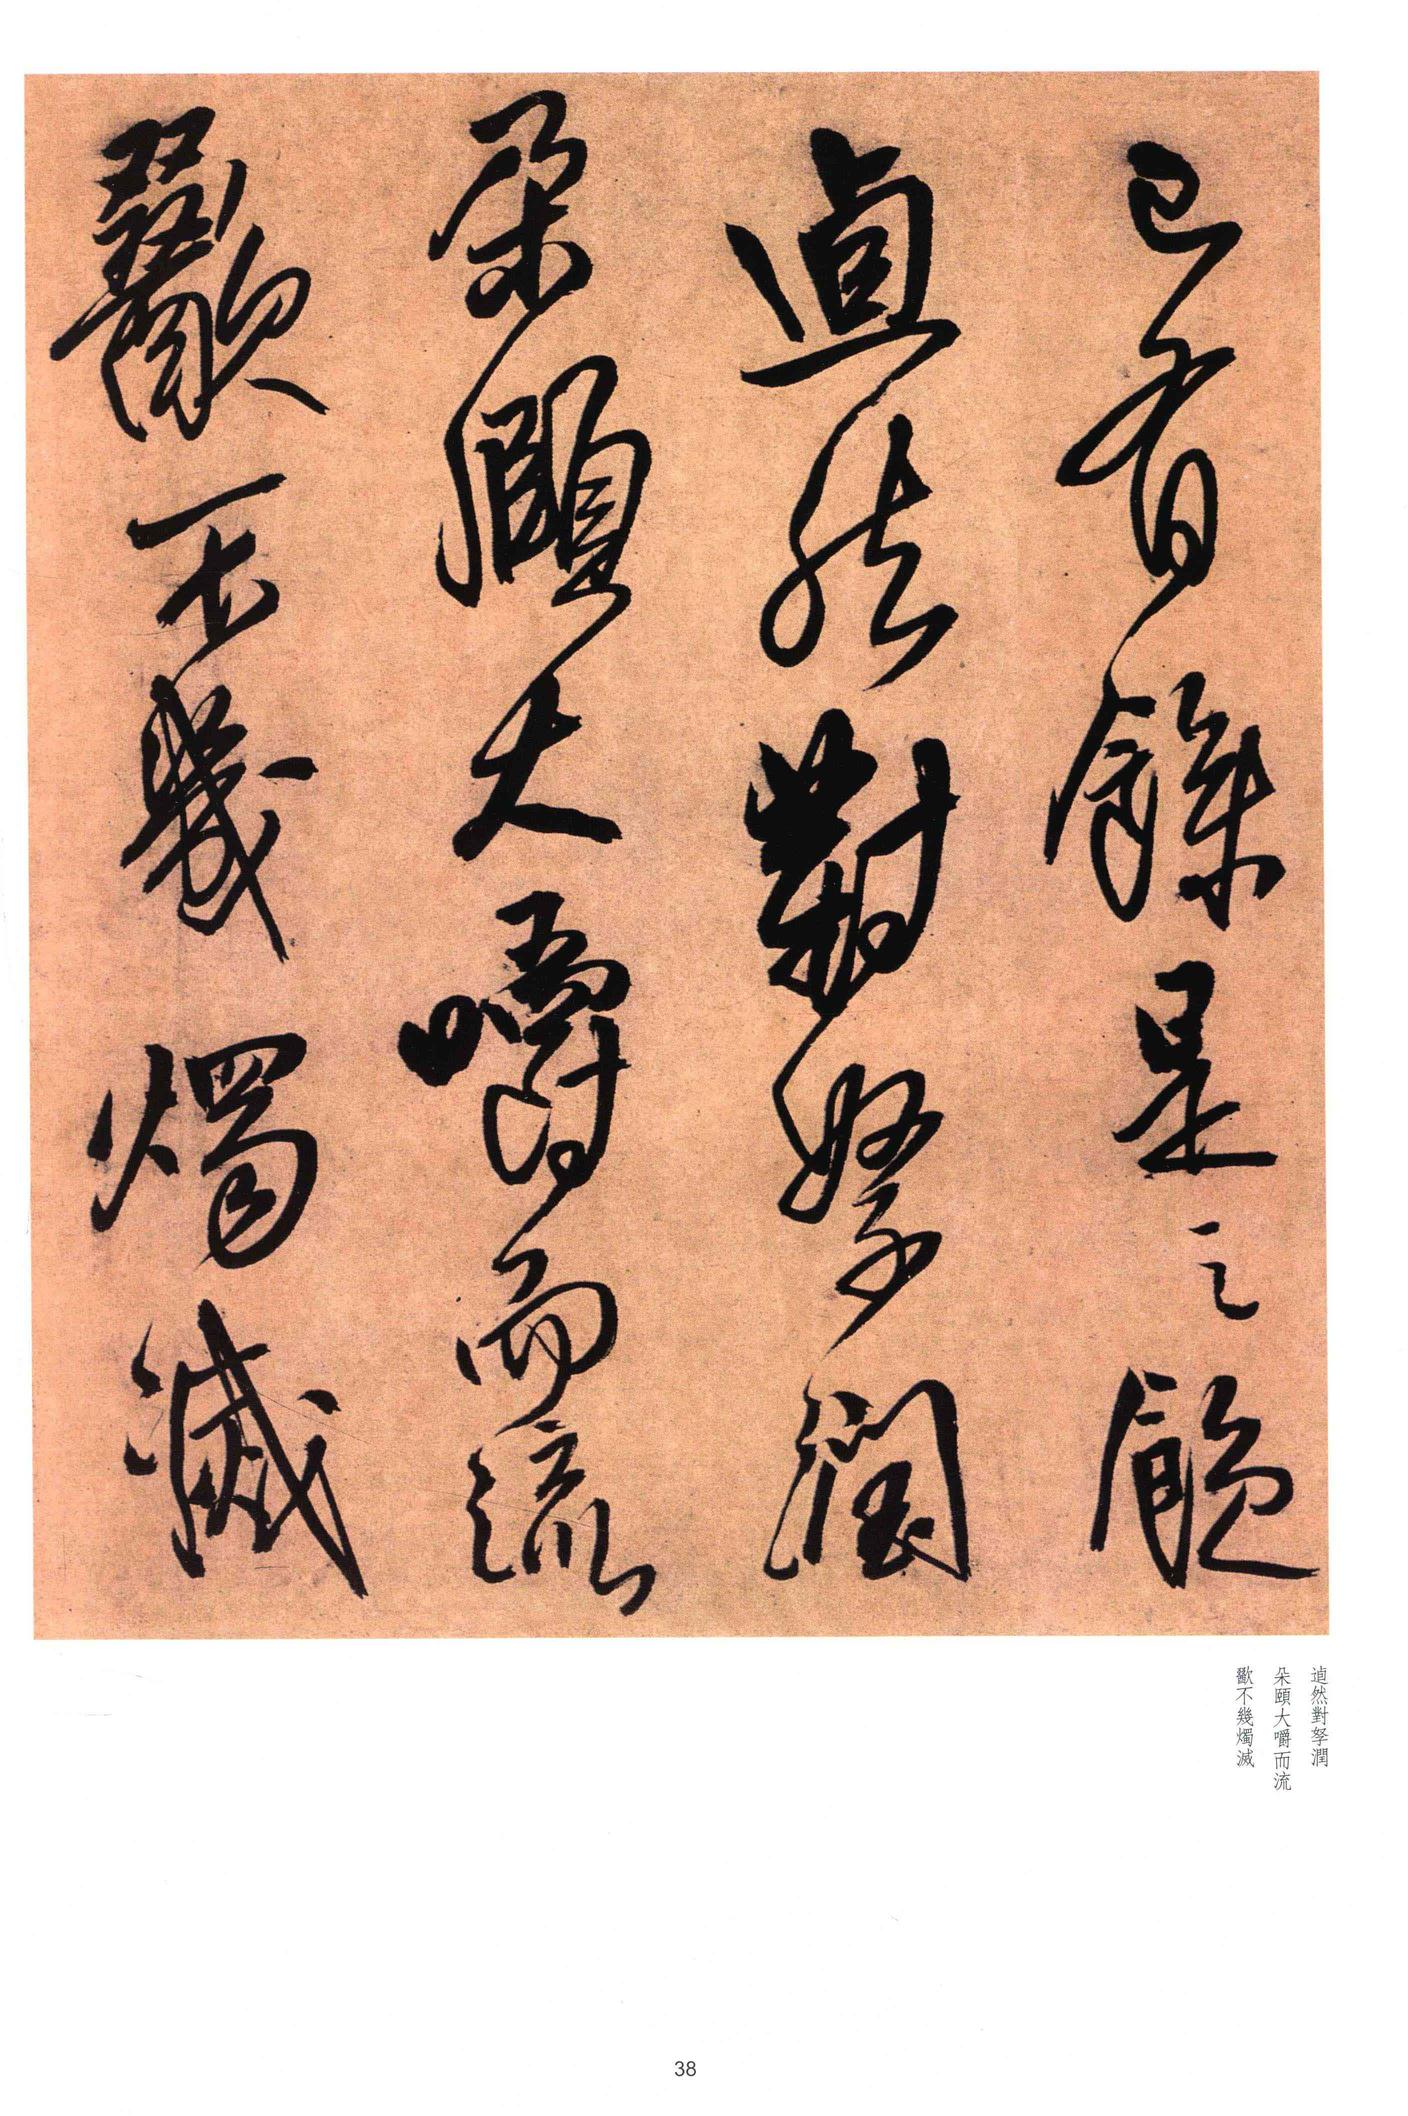 已有餘是之館
逌然對孥潤
朵頤大嚼而流
歠不幾燭滅
逌然對孥潤
朵頤大嚼而流
歠不幾燭滅
38